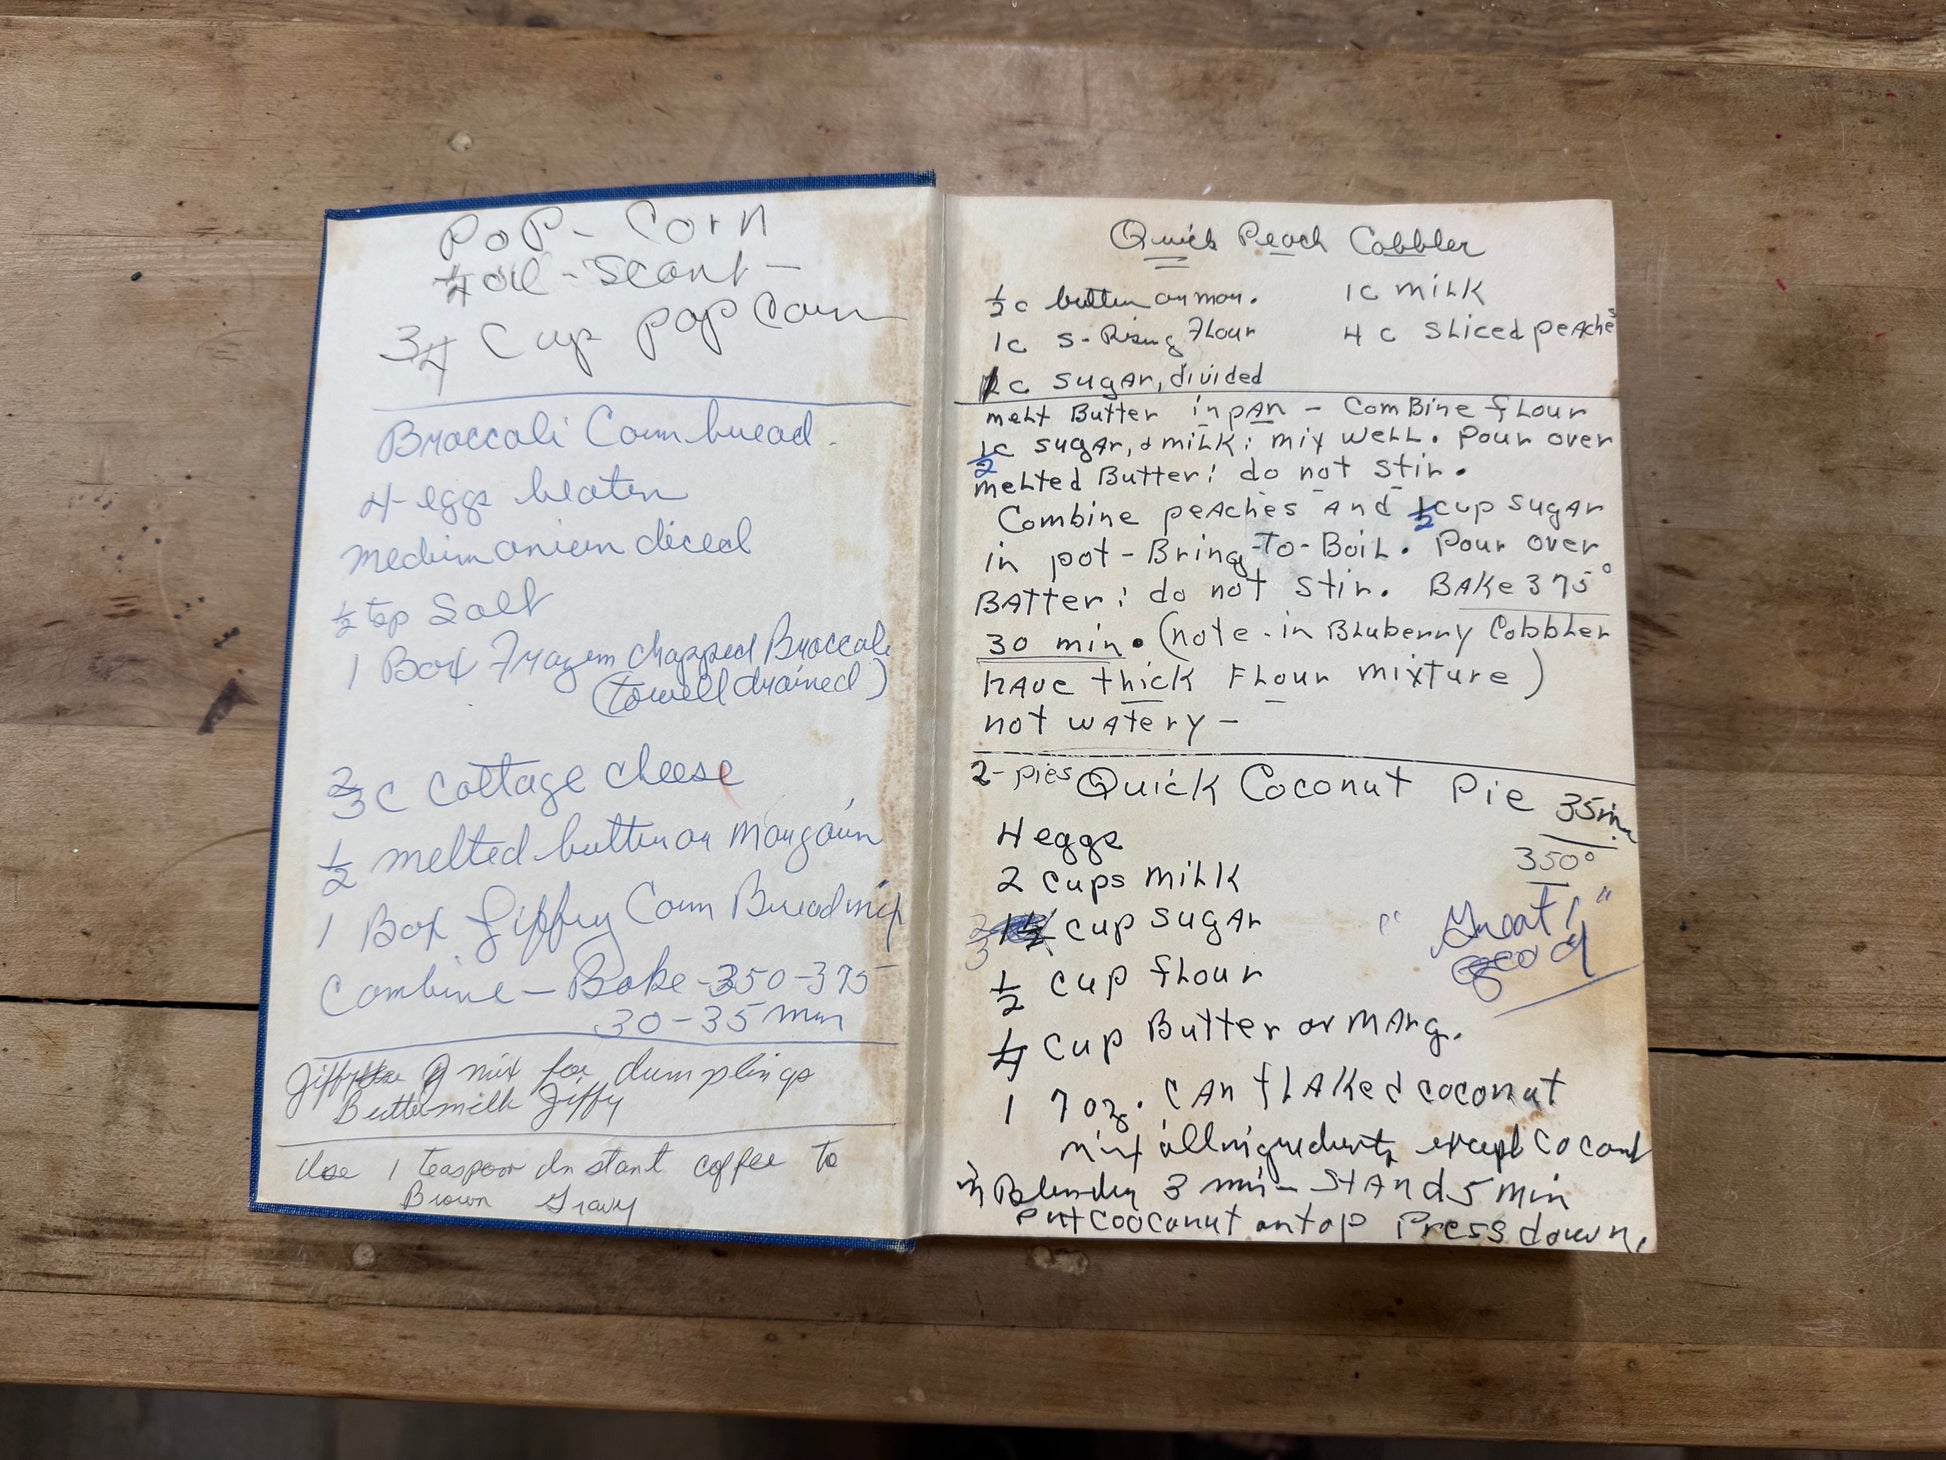 PoP- Corn
1/4 oil - Scant -
3/4 Cup Pop Corn
Broccoli Cornbread.
4 eggs beaten
medium onion diced
1/2 tsp Salt
1 Box Frozen chopped Broccoli
(towell drained)
2/3 C Cottage cheese
1/2 melted butter or Margarin
1 Box Jiffy Corn Bread mix
Combine - Bake - 350-375
30-35 min
Jiffy mix for dumplings
Buttermilk Jiffy
Use 1 teaspoon Instant coffee to
Brown Gravy
Quick Peach Cobbler
1/2 c butter or mar. 1c milk
1c S-Rising Flour 4 c sliced peaches
1c sugar, divided
melt Butter in pan - Combine flour
1/2 c sugar, & milk; mix well. Pour over
melted Butter; do not stir.
Combine peaches and 1/2 cup sugar
in pot - Bring-To-Boil. Pour over
BAtter; do not stir. BAKe 375°
30 min. (note - in Bluberry Cobbler
have thick Flour mixture)
not watery -
2-pies Quick Coconut Pie 35 min.
350°
4 eggs
2 cups milk
2/3 cup sugar
"Great!"
good
1/2 cup flour
1/4 cup Butter or mArg.
1 7 oz. can flaked coconut
mix all ingredients except cocout
in Blender 3 min - Stand 5 min
put cooconut on top Press down.